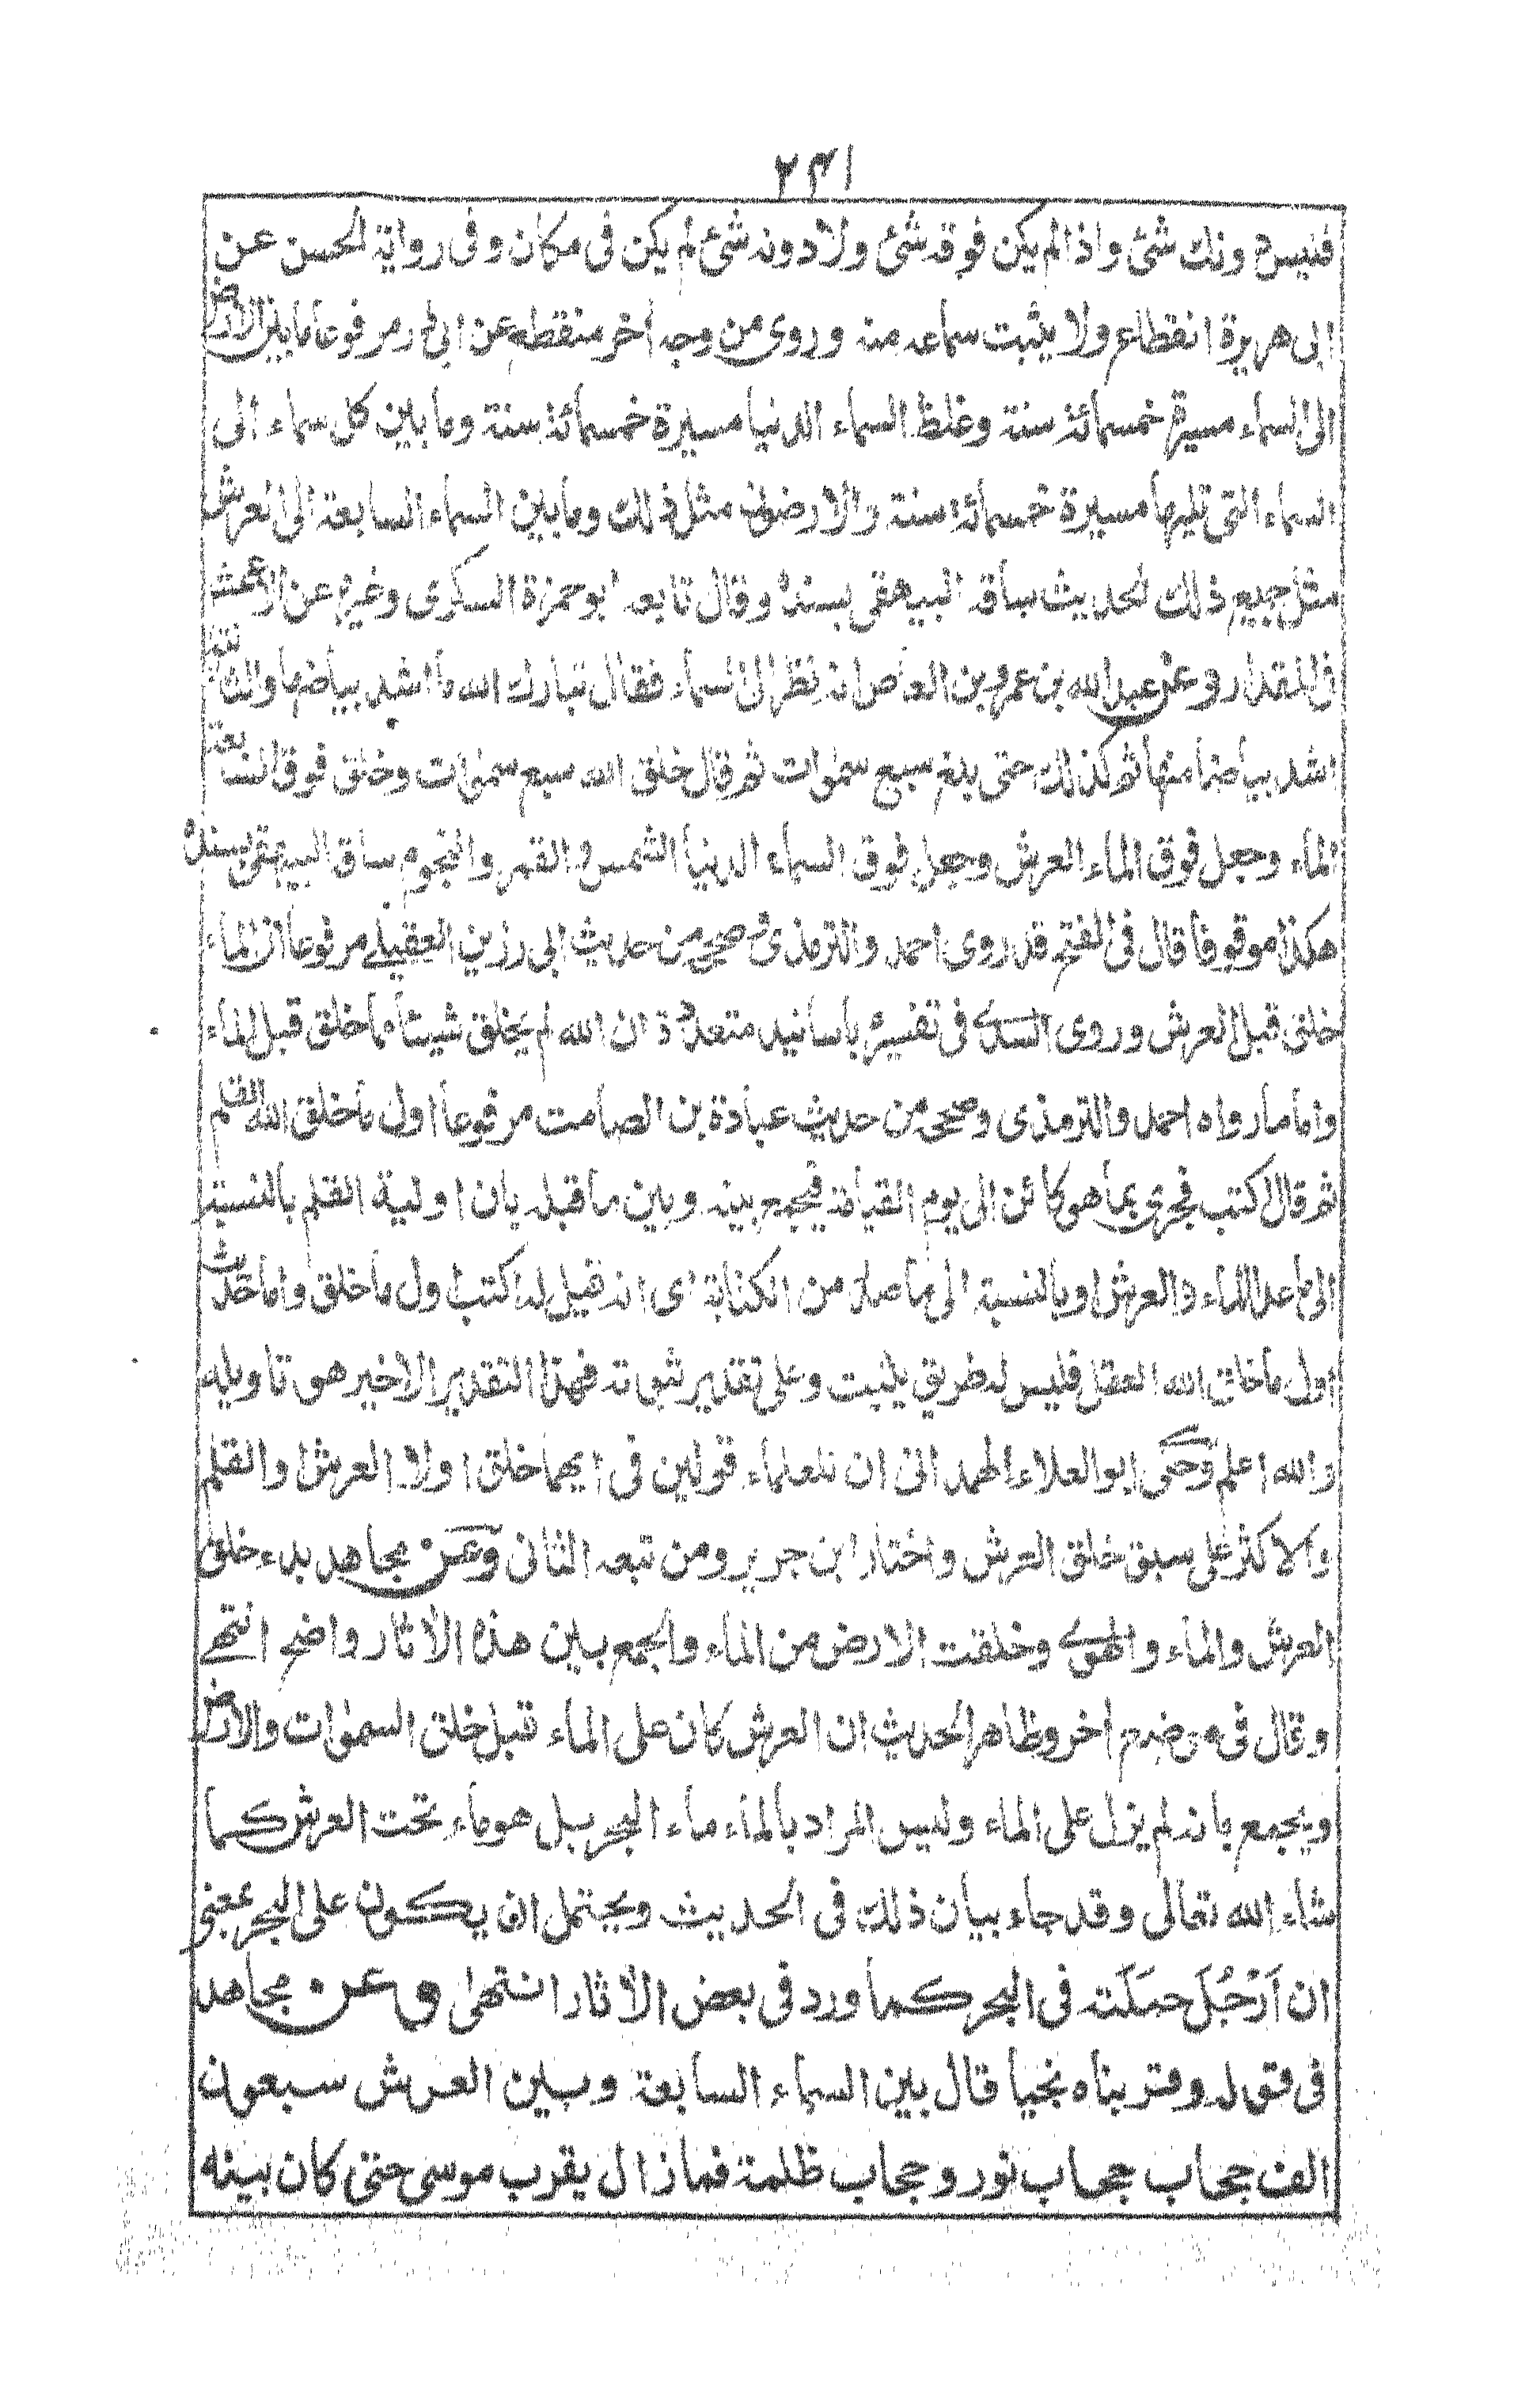 ٢٣١
فليس دونك شئ واذا لم يكن فوقه شئ ولا دونه شئ لم يكن فى مكان وفى رواية الحسن عن
ابى هريرة انقطاع ولا يثبت سماعه منه وروى من وجه أخر منقطع عن ابى ذر مرفوعا ما بين الارض
الى السماء مسيرة خمسمائة سنة وغلظ السماء الدنيا مسيرة خمسمائة سنة وما بين كل سماء الى
السماء التى تليها مسيرة خمسمائة سنة والارضون مثل ذلك وما بين السماء السابعة الى العرش
مثل جميع ذلك الحديث ساقه البيهقى بسنده وقال تابعه ابو حمزة السكرى وغيره عن الاعمش
فى المقدار وعن عبد الله بن عمرو بن العاص انه نظر الى السماء فقال تبارك الله ما اشد بياضها والثانية
اشد بياضا منها ثم كذلك حتى بلغ سبع سموات ثم قال خلق الله سبع سموات وخلق فوق السابعة
الماء وجعل فوق الماء العرش وجعل فوق السماء الدنيا الشمس والقمر والنجوم ساق البيهقى بسنده
هكذا موقوفا قال فى الفتح قد روى احمد والترمذى وصححه من حديث ابى رزين العقيلے مرفوعا ان الماء
خلق قبل العرش وروى السدے فى تفسيره بأسانيد متعددة ان الله لم يخلق شيئا مما خلق قبل الماء
واما ما رواه احمد والترمذى وصححه من حديث عبادة بن الصامت مرفوعا اول ما خلق الله القلم
ثم قال اكتب فجرى بما هو كائن الى يوم القيامة فيجمع بينه وبين ما قبله بان اولية القلم بالنسبة
الى ما عدا الماء والعرش او بالنسبة الى ما صدر من الكتابة اى انه قيل له اكتب اول ما خلق واما حديث
اول ما خلق الله العقل فليس له طريق يثبت وعلى تقدير ثبوته فهذا التقدير الاخير هو تاويله
والله اعلم وحكى ابو العلاء الهمدانى ان للعلماء قولين فى ايهما خلق اولا العرش او القلم
والاكثر على سبق خلق العرش واختار ابن جرير ومن تبعه الثانى وعن مجاهد بدء خلق
العرش والماء والهوے وخلقت الارض من الماء والجمع بين هذه الأثار واضح انتهے
وقال فى موضع أخر وظاهر الحديث ان العرش كان على الماء قبل خلق السموات والارض
ويجمع بانه لم يزل على الماء وليس المراد بالماء ماء البحر بل هو ماء تحت العرش كما
شاء الله تعالى وقد جاء بيان ذلك فى الحديث ويحتمل ان يكون على البحر بمعنى
ان اَرْجُلَ حمَلَته فى البحر كما ورد فى بعض الأثار انتهى وعن مجاهد
فى قوله وقربناه نجيا قال بين السماء السابعة وبين العرش سبعون
الف حجاب حجاب نور وحجاب ظلمة فما زال يقرب موسى حتى كان بينه